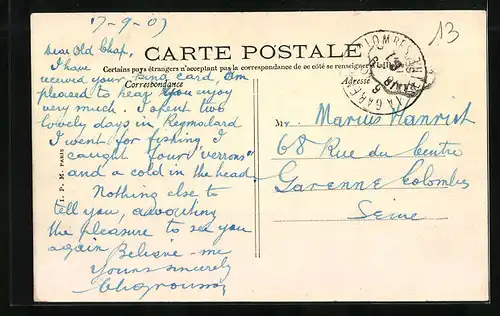 17-9-07
13
CARTE POSTALE
Certains pays étrangers n'acceptant pas la correspondance de ce côté se renseigner
Correspondance
Adresse
Dear Old Chap,
I have
received your card, am
pleased to hear you enjoy
very much. I spent two
lovely days in
I went for fishing I
caught "four verrons"
and a cold in the head
Nothing else to
tell you, awaiting
the pleasure to see you
again Believe-me
Yours sincerely
I. P. M. PARIS
Mr. Marius Hanriot
68 Rue du Centre
Garenne Colombes
Seine
LA GARENNE-COLOMBES